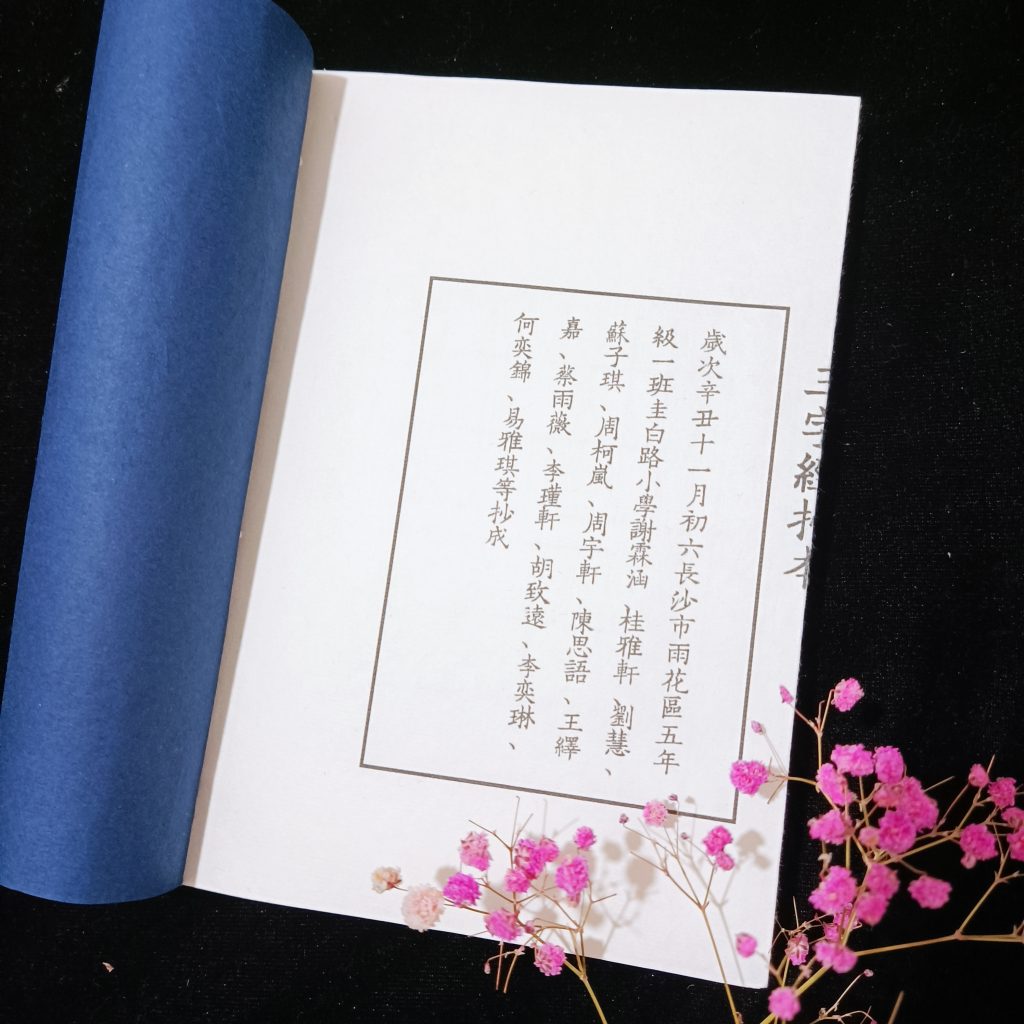 三字經抄本
歲次辛丑十一月初六長沙市雨花區五年
級一班圭白路小學謝霖涵、桂雅軒、劉慧、
蘇子琪、周柯嵐、周宇軒、陳思語、王繹
嘉、蔡雨薇、李瑾軒、胡致遠、李奕琳、
何奕錦、易雅琪等抄成